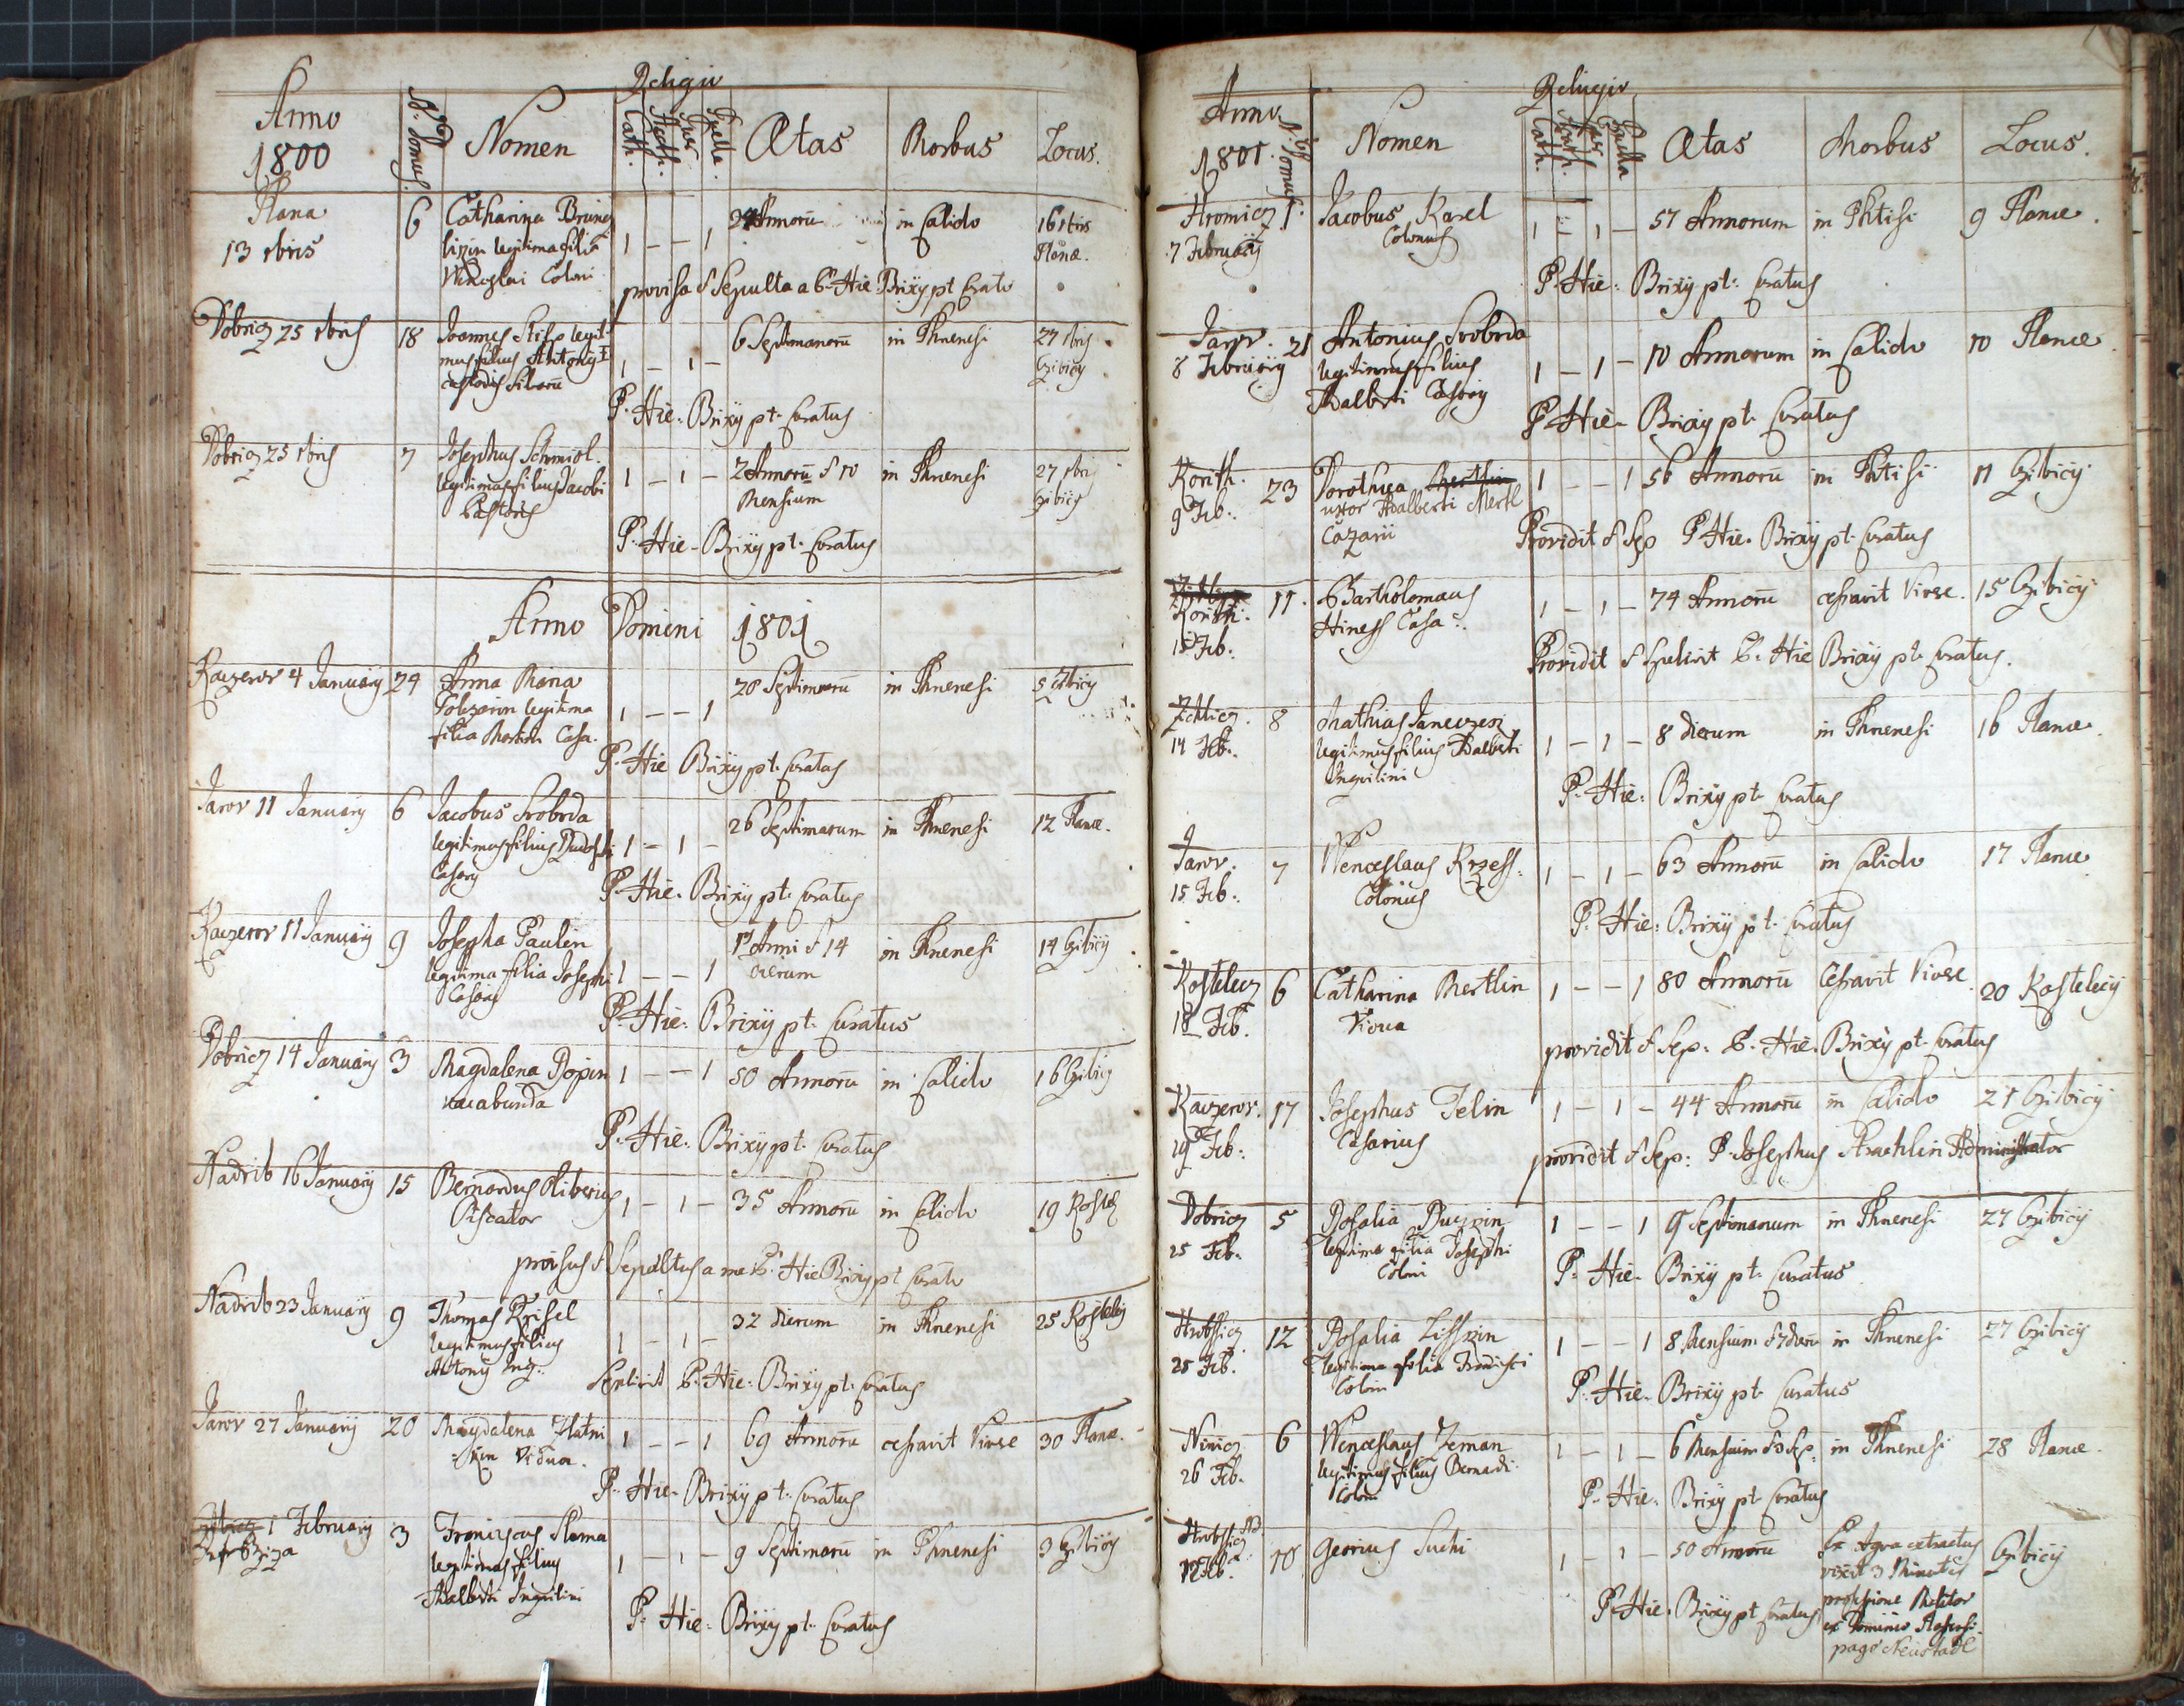 Religio
Anno
1800
Nrus Domus
Nomen
Cath.
Acath.
Puer
Puella
Ætas
Morbus
Locus.
Plana
13 xbris
6
Catharina
legitima filia
Coloni
1 – – 1
Annorū
in Calido
16 xbris
Planæ.
provisa & Sepulta a P. Hie. Brixÿ pt. Curato
Dobricz 25 xbris
18
Joannes
legitimus filius Antonÿ
custodis
1 – 1 –
6 Septimanorū
in Phrenesi
27 xbris
Czibiczÿ
P. Hie. Brixÿ pt. Curatus
Dobricz 25 xbris
7
Josephus Schmiol
legitimus filius Jacobi
Pastoris
1 – 1 –
2 Annorū & 10
Mensium
in Phrenesi
27 xbris
Czibiczÿ
P. Hie. Brixÿ pt. Curatus
Anno Domini 1801
Kaczerov 4 Januarÿ
24
Anna Maria
legitima
filia Martini Casa.
1 – – 1
20 Septimanorū
in Phrenesi
5
P. Hie Brixÿ pt. Curatus
Jarov 11 Januarÿ
6
Jacobus Svoboda
legitimus filius
Casarÿ
1 – 1 –
26 Septimanum
in Phrenesi
12 Planæ.
P. Hie. Brixÿ pt. Curatus
Kaczerov 11 Januarÿ
9
Josepha Paulin
legitima filia Josephi
Casarÿ
1 – – 1
1 Anni & 14
dierum
in Phrenesi
14 Czibiczÿ
P. Hie. Brixÿ pt. Curatus
Dobricz 14 Januarÿ
3
Magdalena Popin
vacabunda
1 – – 1
50 Annorū
in Calido
16 Czibiczÿ
P. Hie. Brixÿ pt. Curatus
Nadrib 16 Januarÿ
15
Bernardus Oliberius
Piscator
1 – 1 –
35 Annorū
in Calido
19 Kostel
provisus & Sepultus a me P. Hie Brixÿ pt Curato
Nadrib 23 Januarÿ
9
Thomas Krisel
legitimus filius
Antonÿ Inq.
1 – 1 –
32 dierum
in Phrenesi
25 Kostelecz
Sepelivit P. Hie. Brixÿ pt. Curatus
Jarov 27 Januarÿ
20
Magdalena Zlatni
Vidua.
1 – – 1
69 Annorū
cessavit Vivere
30 Planæ.
P. Hie. Brixÿ pt. Curatus
1 Februarÿ
Brziza
3
Franciscus Slama
legitimus filius
Adalberti Inquilini
1 – 1 –
9 Septimanorū
in Phrenesi
3 Czibiczÿ
P. Hie. Brixÿ pt. Curatus
Religio
Anno
1801.
Nrus Domus
Nomen
Cath.
Acath.
Puer
Puella
Ætas
Morbus
Locus.
Hromicz
7 Februarÿ
1.
Jacobus Karel
Colonus
1 – 1 –
57 Annorum
in Phtisi
9 Planæ.
P. Hie. Brixÿ pt. Curatus
Jarov.
8 Februarÿ
21
Antonius Svoboda
legitimus filius
Adalberti Casarÿ
1 – 1 –
10 Annorum
in Calido
10 Planæ
P. Hie. Brixÿ pt. Curatus
Korith.
9 Feb.
23
Dorothea
uxor Adalberti Mertl
Cazarii
1 – – 1
56 Annorū
in Phtisi
11 Czibiczÿ
Providit & Sep P Hie. Brixÿ pt. Curatus
Korith.
13 Feb.
11.
Bartholomæus
Hiness Casa.
1 – 1 –
74 Annorū
cessavit Vivere.
15 Czibiczÿ
Providit & Sepelivit P. Hie Brixÿ pt. Curatus.
14 Feb.
8
Mathias Janeczek
legitimus filius Adalberti
Inquilini
1 – 1 –
8 dierum
in Phrenesi
16 Planæ.
P. Hie. Brixÿ pt. Curatus
Jarov.
15 Feb.
7
Wenceslaus Krzess.
Colonus
1 – 1 –
63 Annorū
in Calido
17 Planæ
P. Hie. Brixÿ pt. Curatus
Kostelecz
18 Feb.
6
Catharina Mertlin
Vidua
1 – – 1
80 Annorū
Cessavit Vivere
20 Kosteleczÿ
providit & Sep. P. Hie. Brixÿ pt. Curatus
Kaczerov.
19 Feb.
17
Josephus Jelin
Casarius
1 – 1 –
44 Annorū
in Calido
21 Czibiczÿ
providit & Sep. P. Josephus Administrator
Dobricz
25 Feb.
5
Rosalia
legitima filia Josephi
Coloni
1 – – 1
9 Septimanum
in Phrenesi
27 Czibiczÿ
P. Hie. Brixÿ pt. Curatus
25 Feb.
12
Rosalia
legitima filia Francisci
Coloni
1 – – 1
8 Mensium & 7 dierū
in Phrenesi
27 Czibiczÿ
P. Hie. Brixÿ pt. Curatus
26 Feb.
6
Wenceslaus Zeman
legitimus filius Bernardi
Coloni
1 – 1 –
6 Mensium & 3 Sep.
in Phrenesi
28 Planæ.
P. Hie. Brixÿ pt. Curatus
Feb.
10
Georius Suchi
1 – 1 –
50 Annorū
Ex Aqva extractus
vixit 3 Minutis
professione
ex Dominio
pago Neustadl
Czibiczÿ
P. Hie. Brixÿ pt Curatus